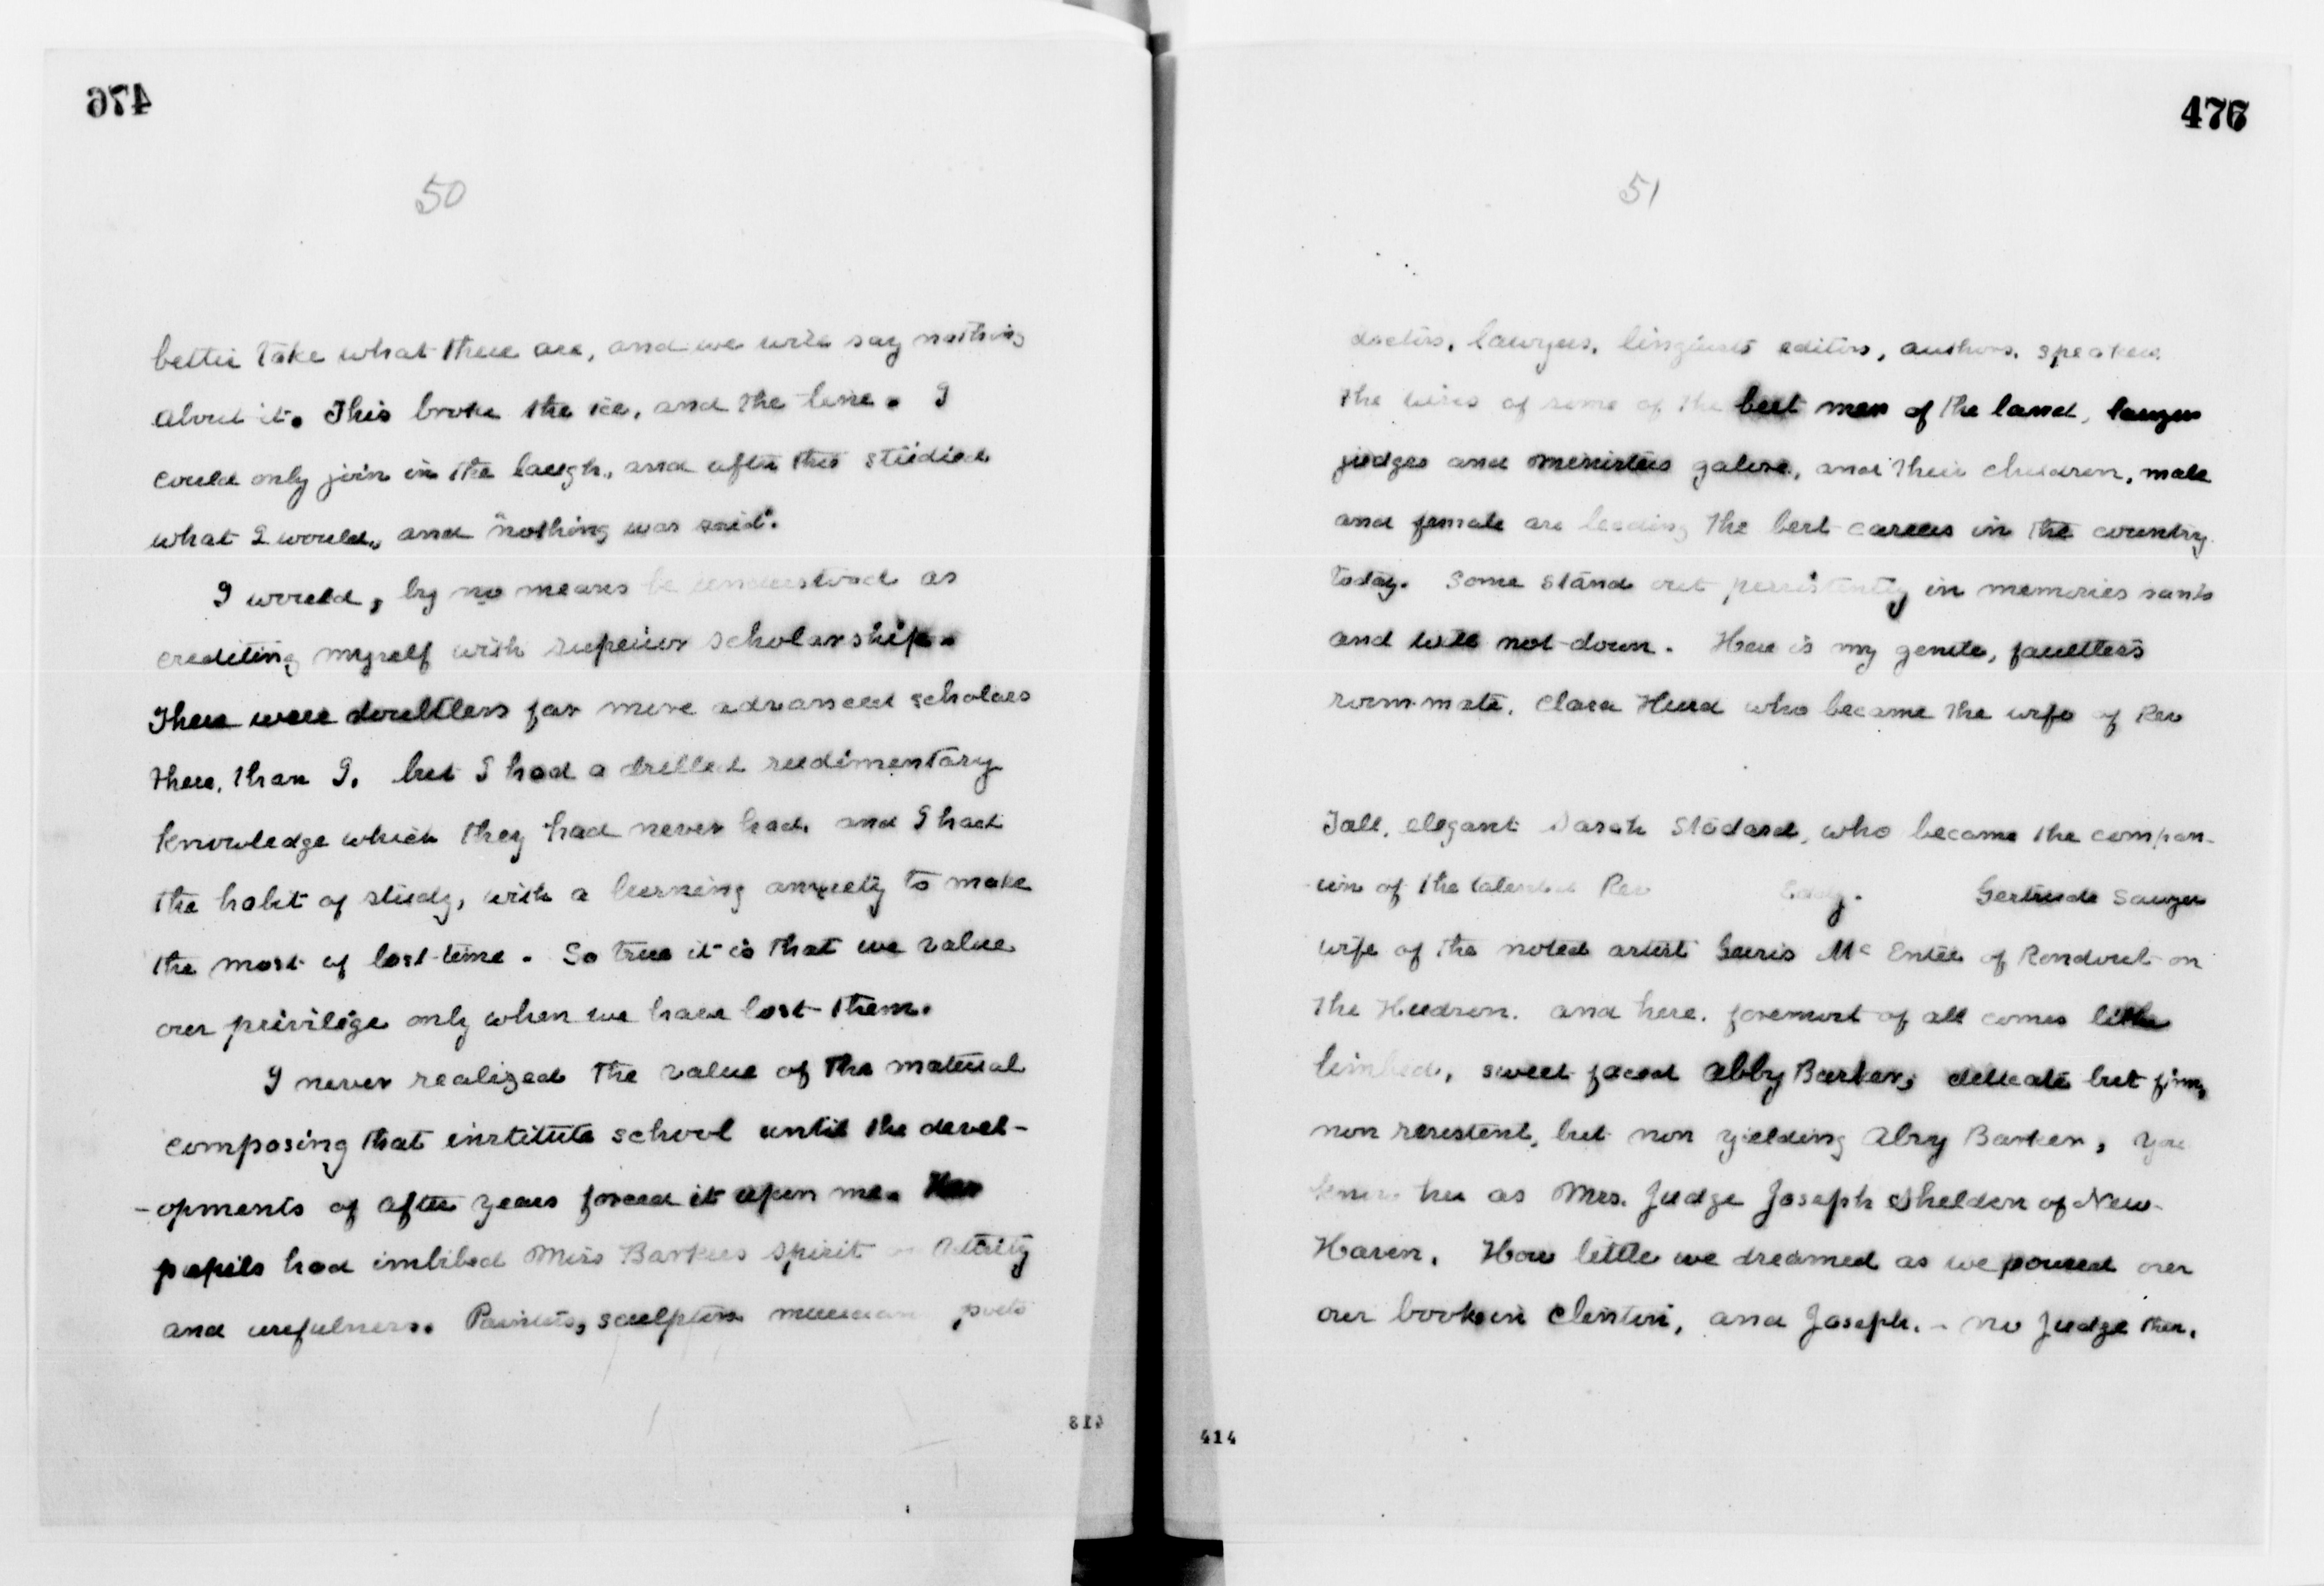 476
50
better take what there are, and we will say nothing
about it. This broke the ice, and the line. I
could only join in the laugh, and after this studied
what I would, and "nothing was said".
I would, by no means be understood as
crediting myself with superior scholarship.
There were doubtless far more advanced scholars
there, than I, but I had a drilled rudimentary
knowledge which they had never had, and I had
the habit of study, with a burning anxiety to make
the most of lost time. So true it is that we value
our privilege only when we have lost them.
I never realized the value of the material
composing that institute school until the devel-
-opments of after years forced it upon me. Her
pupils had imbibed Miss Barkers spirit activity
and usefulness. Painters, sculptors musician poets
413
476
51
doctors, lawyers, linguists editors, authors, speakers
the wives of some of the best men of the land, lawyer
judges and ministers galore, and their children, male
and female are leading the best careers in the country
today. Some stand out persistently in memories
and will not down. Here is my gentle, faultless
room-mate, Clara Hurd who became the wife of Rev
Tall, elegant Sarah Stodard, who became the compan-
-ion of the talented Rev Eddy. Gertrude Sawyer
wife of the noted artist Gervis Mc Entee of Rondout on
the Hudson. and here, foremost of all comes lithe
limbed, sweet faced Abby Barker, delicate but firm,
non resistent, but non yielding Abby Barker, you
know her as Mrs. Judge Joseph Sheldon of New-
Haven. How little we dreamed as we poured over
our books in Clinton, and Joseph. - no Judge then.
414